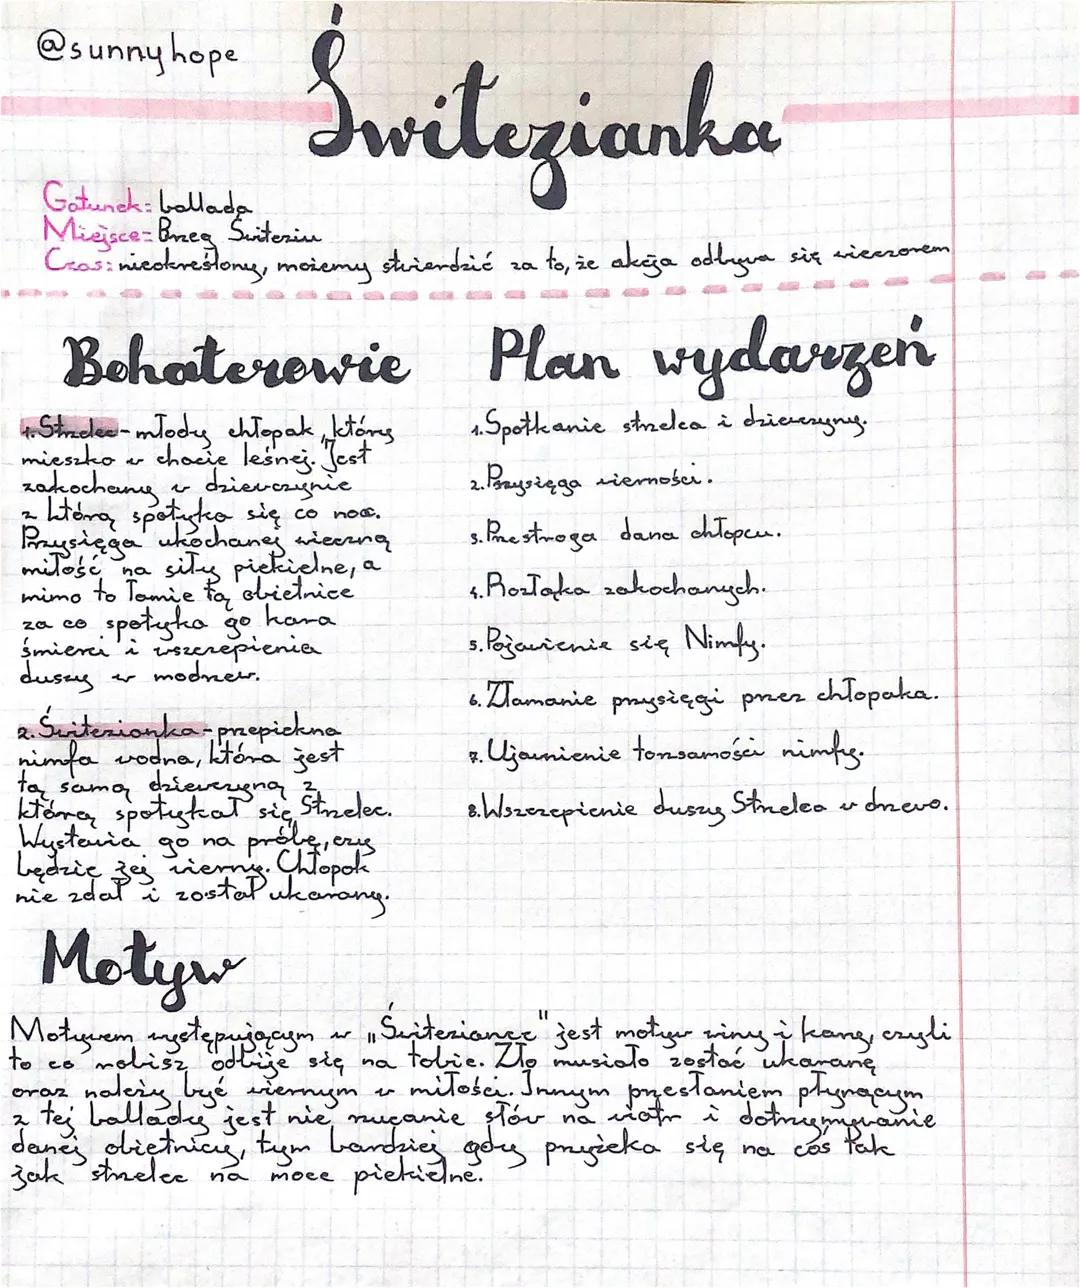 @sunnyhope
Świtezianka
Gatunek: ballada
Miejsce: Brzeg Świteziu
Czas: nieokreślony, możemy stwierdzić za to, że akcja odbywa się wieczorem
Bohaterowie
1. Strzelec - młody chłopak, który
mieszka w chacie leśnej. Jest
zakochany w dziewczynie
z którą spotyka się co noc.
Przysięga ukochanej wieczną
miłość na siły piekielne, a
mimo to łamie tą obietnice
za co spotyka go kara
śmierci i wszczepienia
duszy w modrzew.
2. Świtezianka - przepiękna
nimfa wodna, która jest
tą samą dziewczyną z
którą spotykał się Strzelec.
Wystawia go na próbę, czy
będzie jej wierny. Chłopak
nie zdał i został ukarany.
Plan wydarzeń
1. Spotkanie strzelca i dziewczyny.
2. Przysięga wierności.
3. Przestroga dana chłopcu.
4. Rozłąka zakochanych.
5. Pojawienie się Nimfy.
6. Złamanie przysięgi przez chłopaka.
7. Ujawnienie tożsamości nimfy.
8. Wszczepienie duszy Strzelca w drzewo.
Motyw
Motywem występującym w „Świteziance" jest motyw winy i kary, czyli
to co robisz odbije się na tobie. Zło musiało zostać ukarane
oraz należy być wiernym w miłości. Innym przesłaniem płynącym
z tej ballady jest nie rzucanie słów na wiatr i dotrzymywanie
danej obietnicy, tym bardziej gdy przyżeka się na coś tak
jak strzelec na moce piekielne.